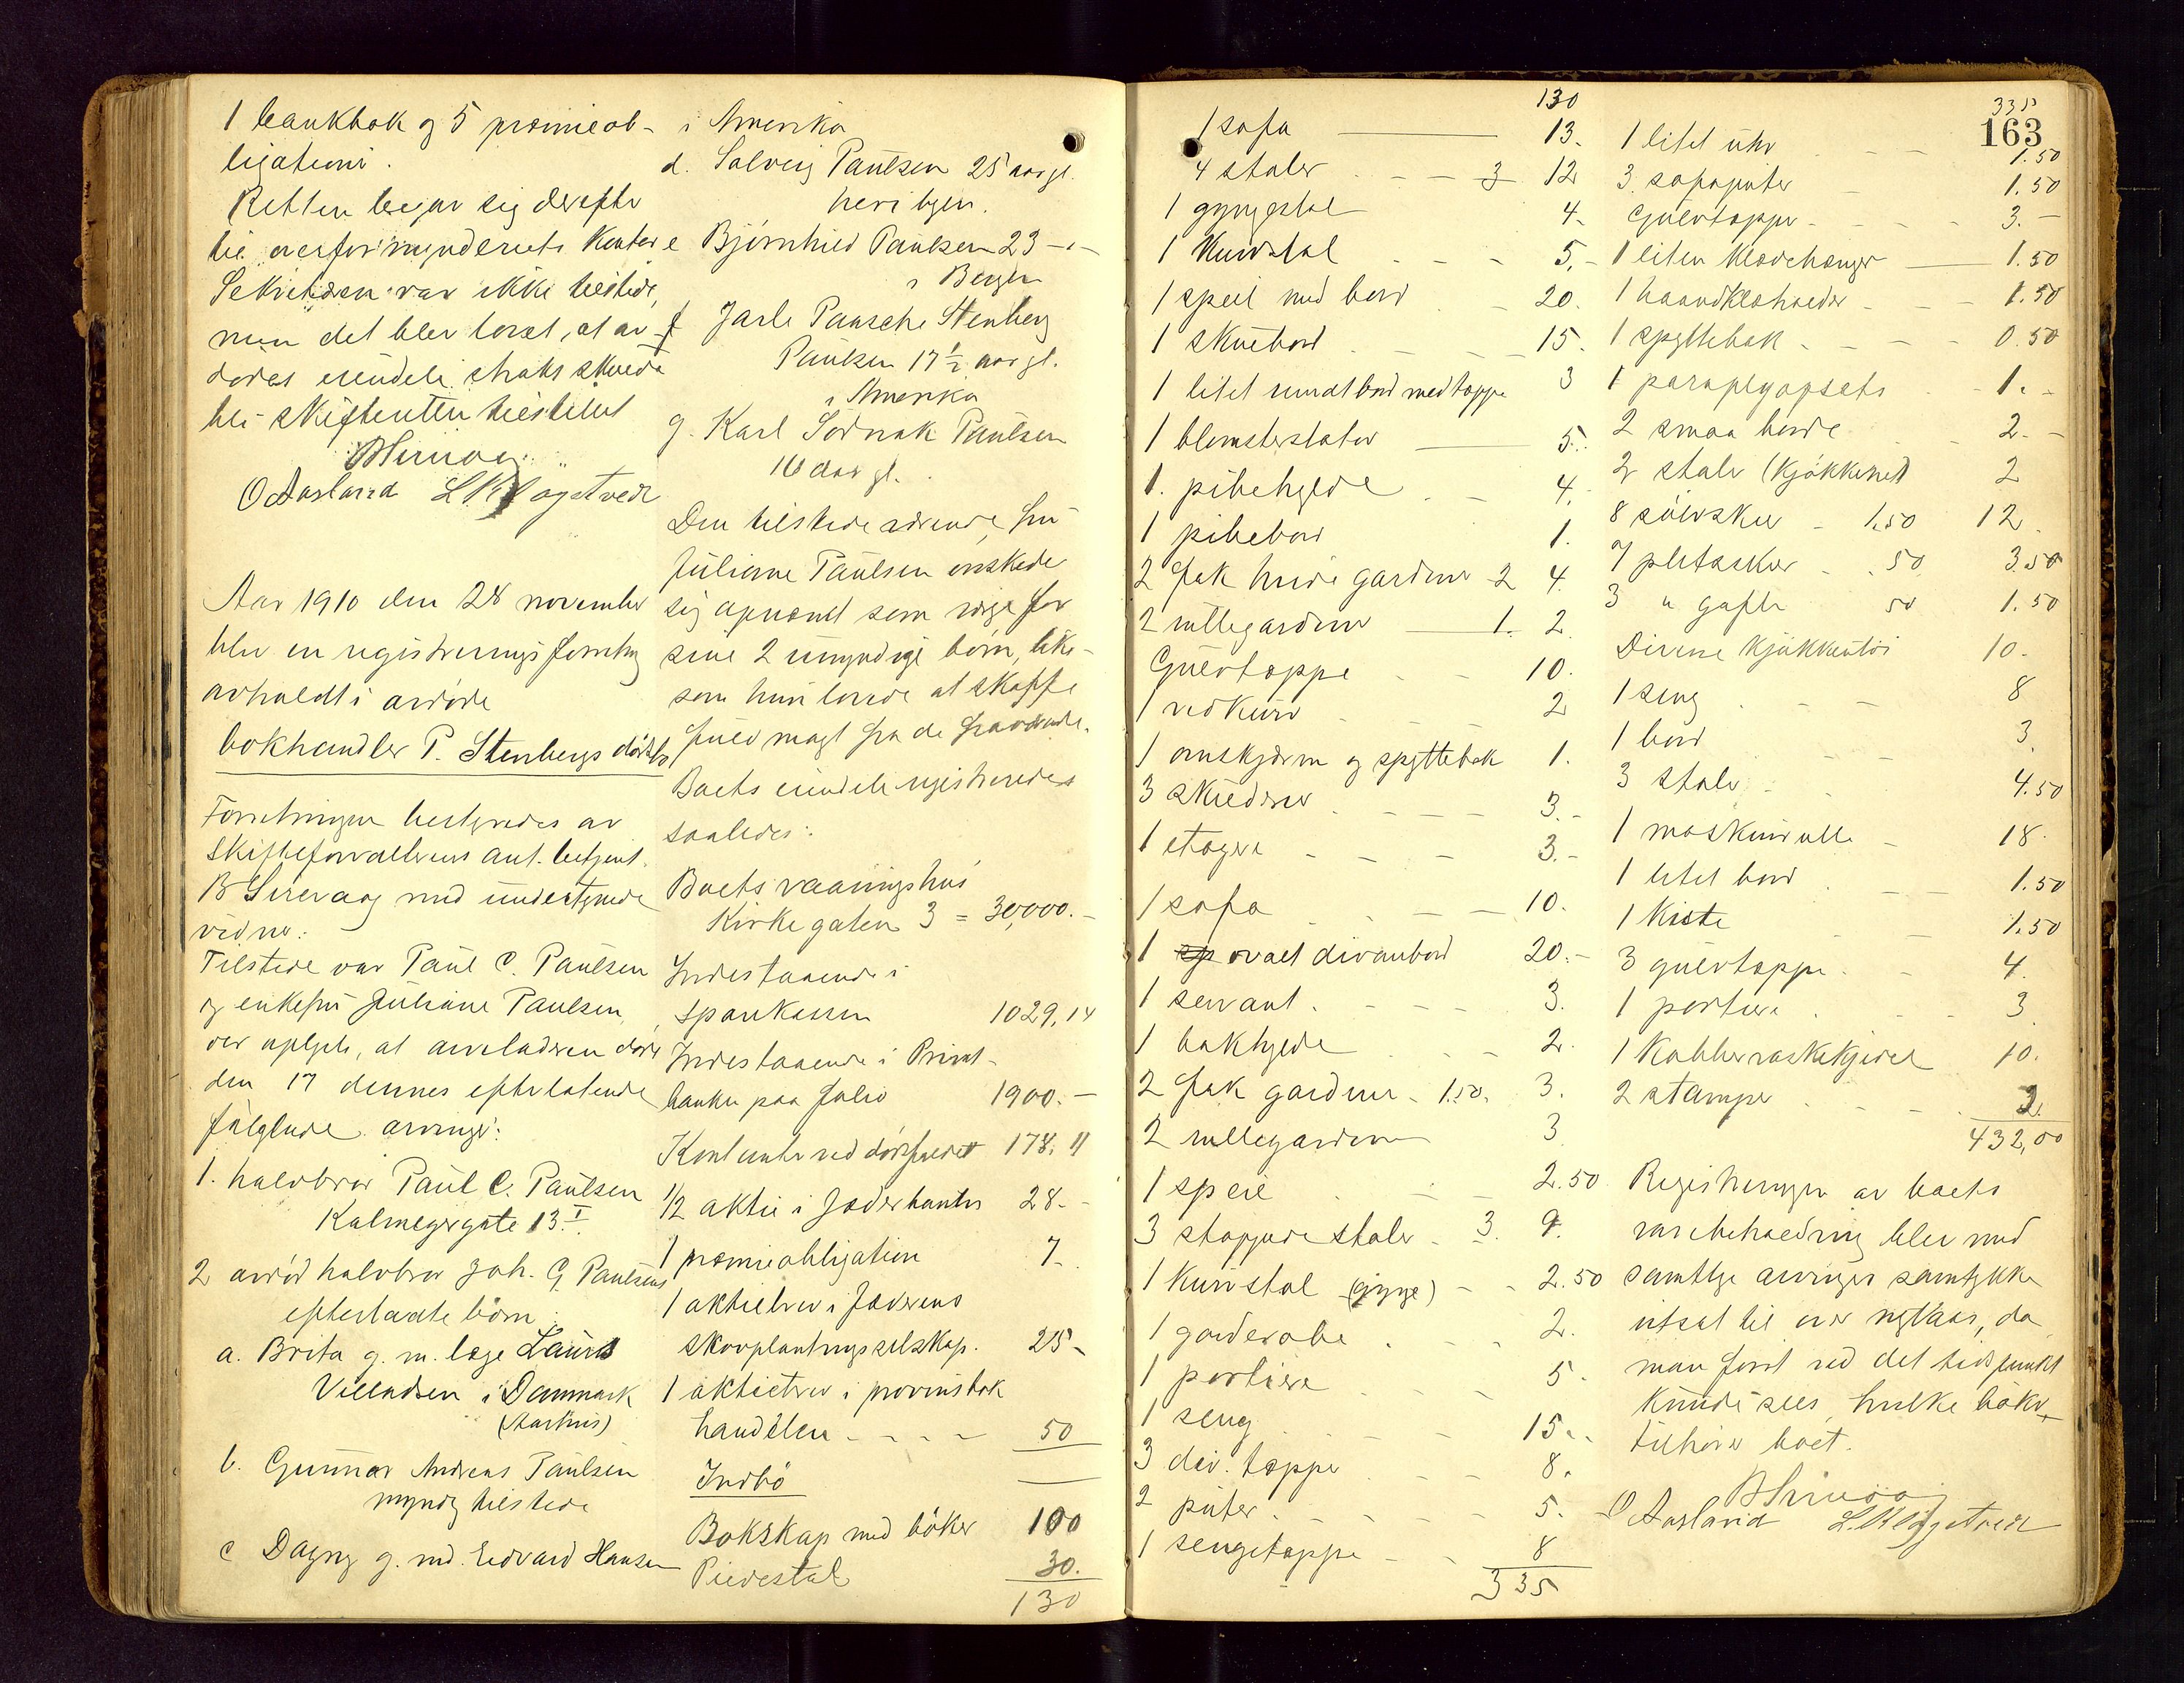 1 bankbok og 5 præmieob-
ligationer.
Retten begav sig derefter
til overformynderiets kontor
Sekretæren var ikke tilstede,
men det blev lovet, at av-
dødes eiendele straks skulde
bli skifteretten tilstillet
B Sirevaag
O Aasland L. Klogetvedt
Aar 1910 den 28 november
blev en registreringsforretning
avholdt i avdøde
bokhandler P. Stenbergs dødsbo
Forretningen bestyredes av
skifteforvalterens aut. betjent
B Sirevaag med undertegnede
vidner:
Tilstede var Paul C. Paulsen
og enkefru Juliane Paulsen,
der oplyste, at arveladeren døde
den 17 dennes efterlatende
følgende arvinger:
1. halvbror Paul C. Paulsen
Kalmegergate 13 I.
2 avdød halvbror Joh. G. Paulsens
efterladte børn:
a. Brita g. m. læge Laurits
Villadsen i Danmark
(Aarhus)
b. Gunnar Andreas Paulsen
myndig tilstede
c Dagny g. md. Edvard Hansen
i Amerika
d. Solveig Paulsen 25 aar gl.
her i byen.
e Bjørnhild Paulsen 23 -"-
i Bergen
f Jarle Paasche Stenberg
Paulsen 17 1/2 aar gl.
i Amerika
g. Karl Sodnak Paulsen
16 aar gl.
Den tilstede værende fru
Juliane Paulsen ønskede
sig opnævnt som værge for
sine 2 umyndige børn, like-
som hun lovede at skaffe
fuldmagt fra de fraværende.
Boets eiendele registreredes
saaledes:
Boets vaaningshus
Kirkegaten 3 = 30,000.-
Indestaaende i
sparkassen 1029,14
Indestaaende i Privat-
banken paa folio 1900.-
Kontanter ved dødsfaldet 178.11
1/2 aktie i Jæderbanken 28.-
1 præmieobligation 7.-
1 aktiebrev i Jæderens
skovplantningsselskap. 25-
1 aktiebrev i provinsbok
handelen - - - - 50
Indbo
Bokskap med bøker 100
Piedestal 30.
130
130
1 sofa 13.
4 stoler - - - 3 12
1 gyngestol 4.
1 kurvstol - - - 5.-
1 speil med bord - 20.
1 skrivebord - - - 15.
1 litet rundt bord med tæppe 3
1 blomsterstativ 5.
1. pibehylde - - 4.
1 pibebord 1.
2 fak hvide gardiner 2 4.
2 rullegardiner 1. 2.
Gulvtæppe - - 10.
1 vedkurv - - - 2
1 ovnskjærm og spyttebak 1.
3 skilderier - - - 3.-
1 etagere - - - 3.-
1 sofa - - - 10.
1 ovalt divanbord 20.-
1 servant. - - - 3.
1 bokhylde - - 2.
2 fak gardiner - 1.50. 3.
2 rullegardiner 3
1 speil - - 2.50
3 stoppede stoler - 3. 9.
1 kurvstol (gynge) - - 2.50
1 garderobe - - 2.
1 portiere - - 5.
1 seng - - 15.
3 div. tæpper - - 8.
2 puter - - - - 5.
1 sengetæppe - - 8
335
335
163
1 litet uhr - - 1.50
3 sofaputer - 1.50
Gulvtæppe - - - 3.-
1 liten klædehænger 1.50
1 haandklæholder - - 1.50
1 spyttebak - - - - 0.50
1 paraplyopsats - 1.-
2 smaa borde - - 2.-
2 stoler (kjøkkenet) 2
8 sølvskeer - 1.50 12.
7 pletskeer - .50 3.50
3 " gafler 50 1.50
Diverse kjøkkentøi 10.
1 seng - - - 8
1 bord - - - 3.
3 stoler - - 4.50
1 maskinrulle - 18.
1 litet bord - - 1.50
1 Kiste - - 1.50
3 gulvtæpper - - 4.
1 portiere - - - 3.
1 kobbervaskekjedel 10.
2 stamper - - - 2.
432,00
Registreringen av boets
varebeholdning blev med
samtlige arvingers samtykke
utsat til over nytaar, da
man først ved det tidspunkt
kunde sees, hvilke bøker
tilhører boet.
B Sirevaag
O Aasland L. Klogetvedt